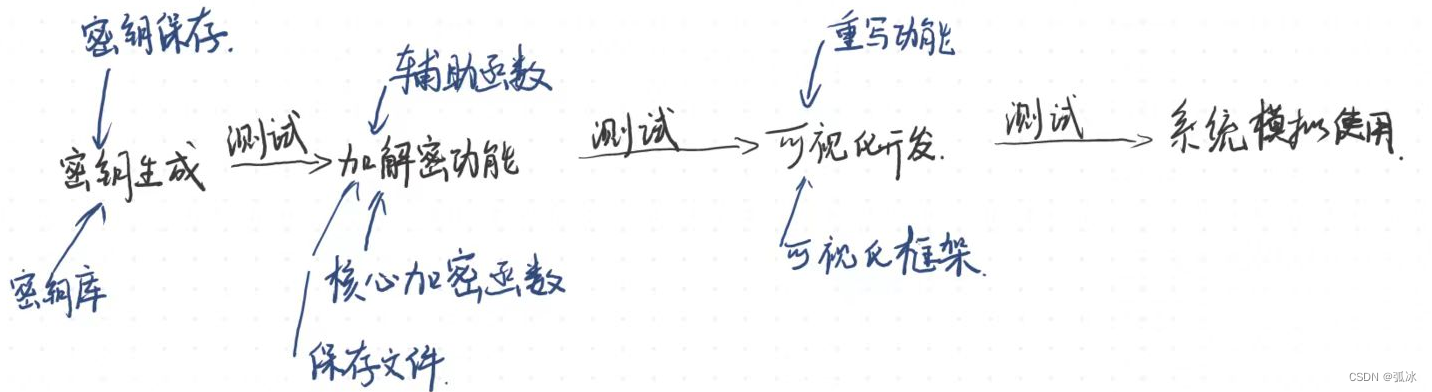 密钥保存.
辅助函数
重写功能
密钥生成
测试
加解密功能
测试
可视化开发.
测试
系统模拟使用.
密钥库
核心加密函数
可视化框架.
保存文件.
CSDN @弧冰